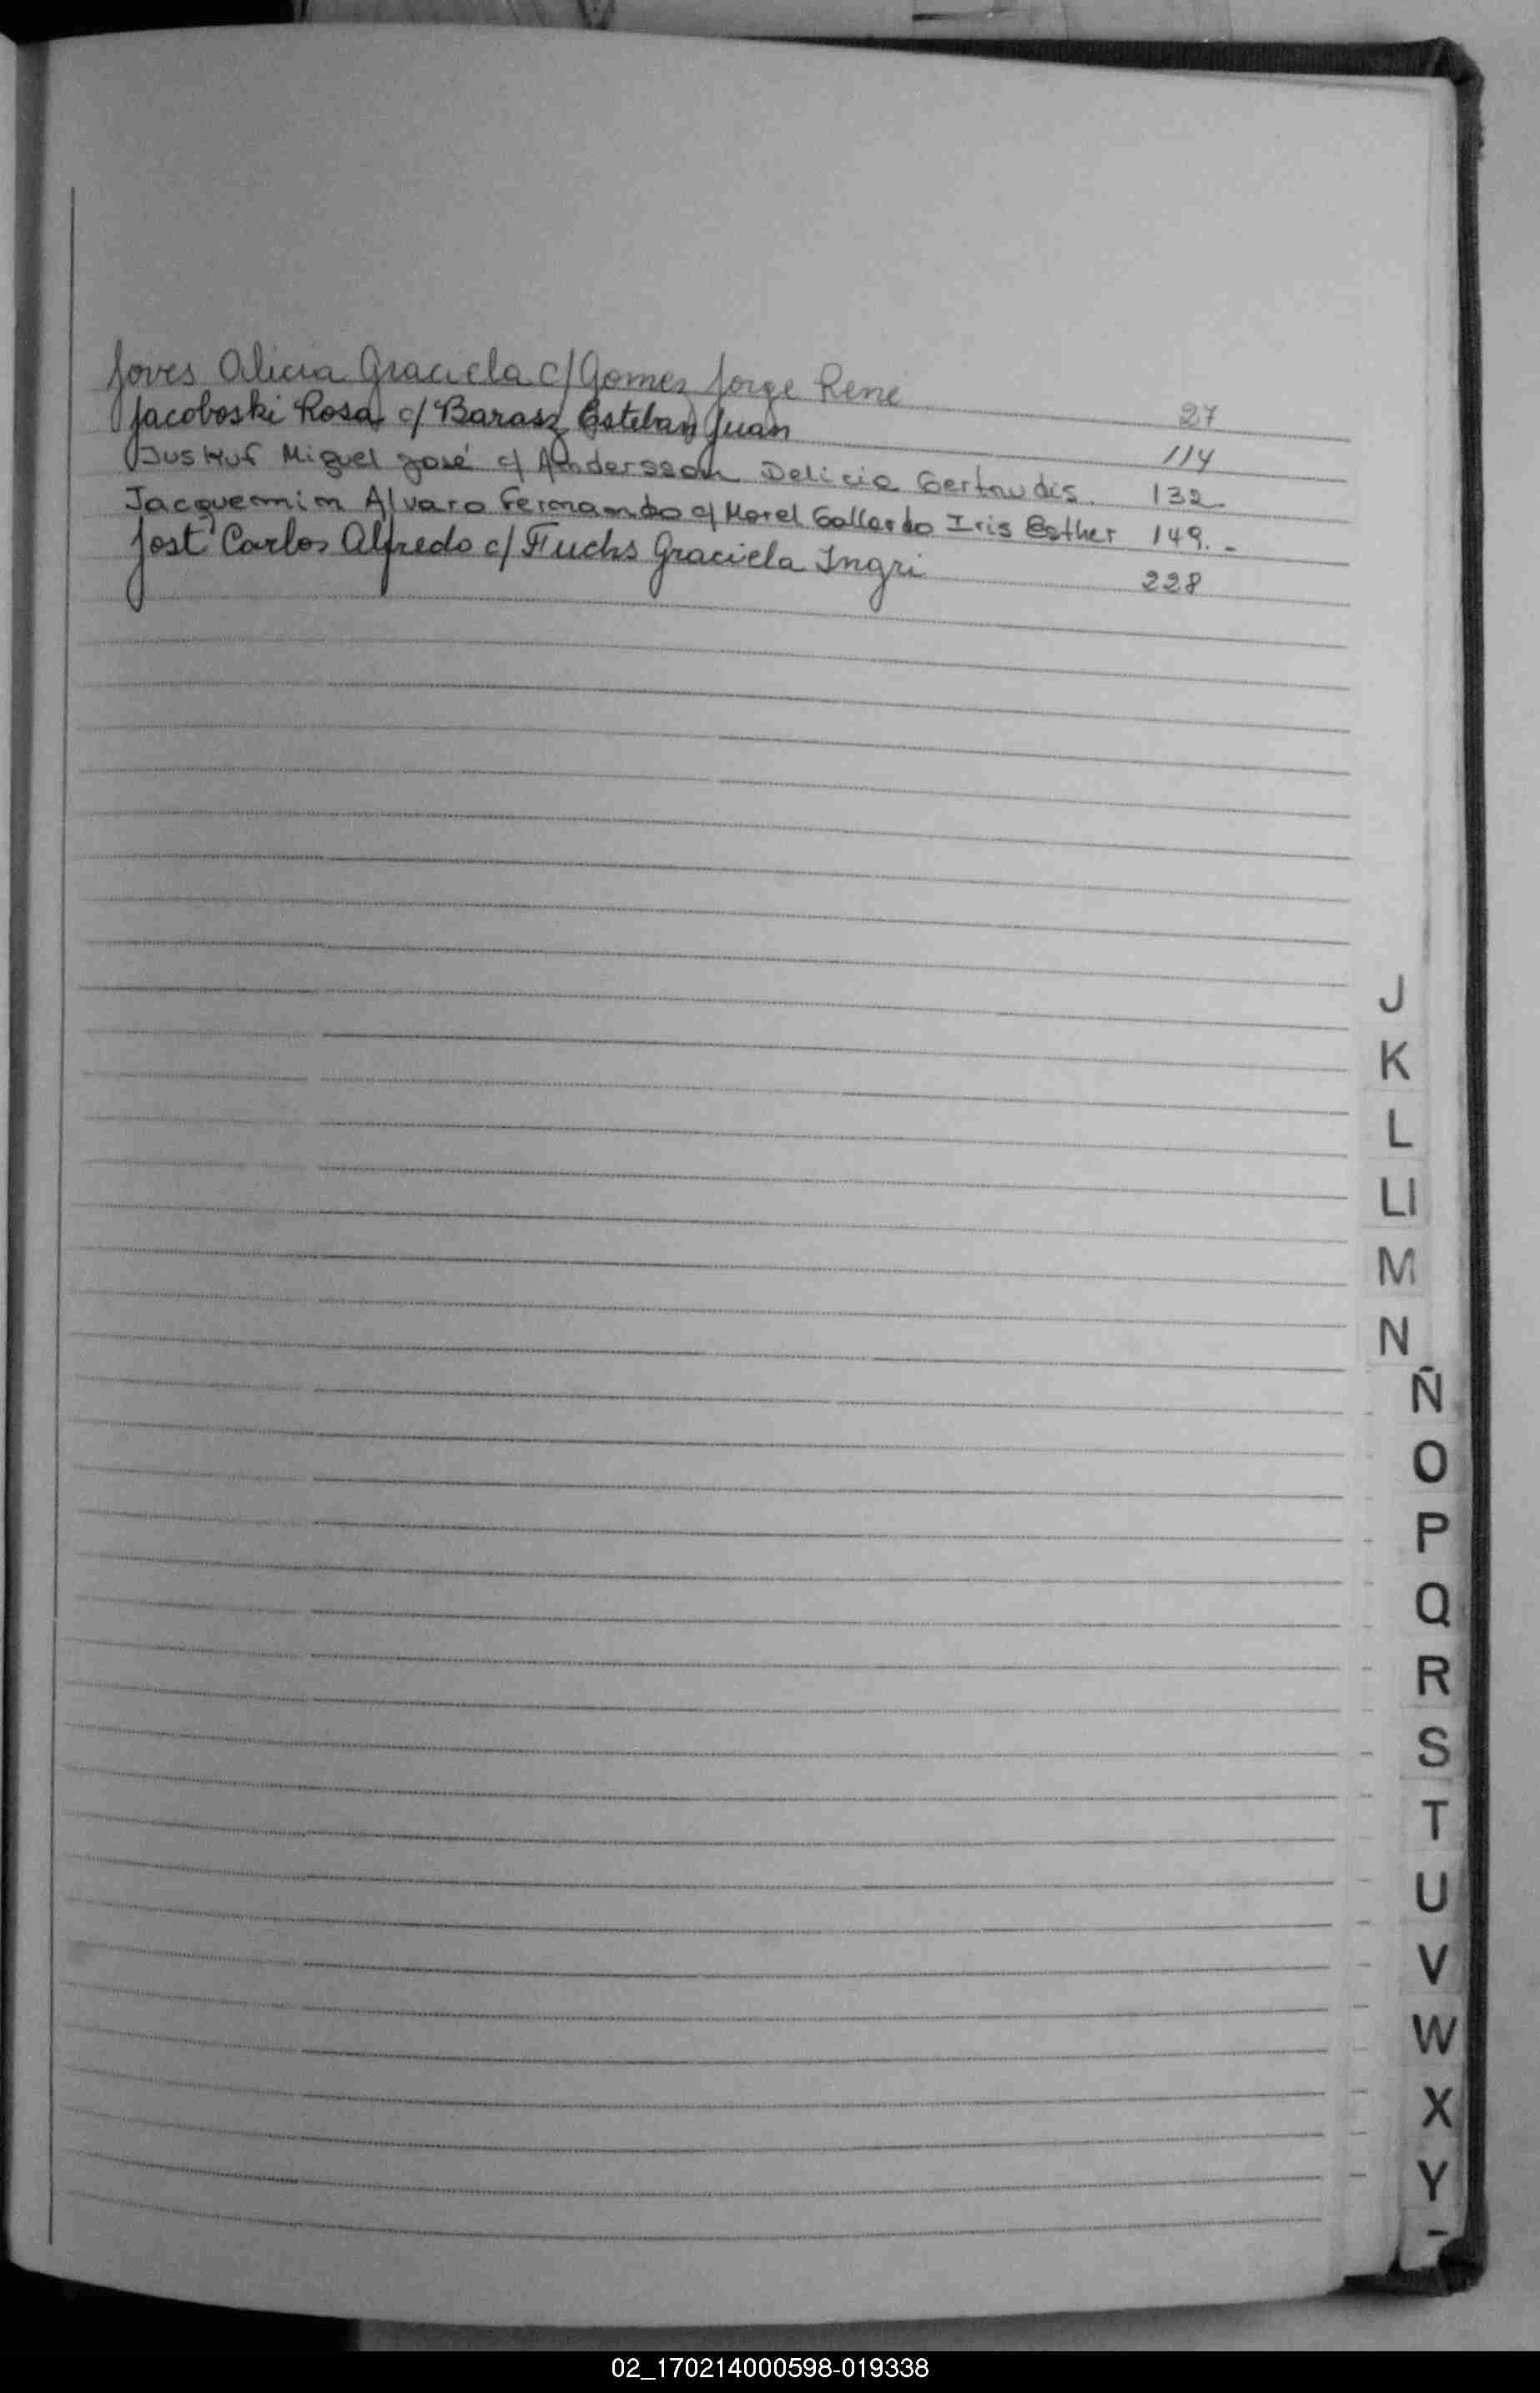 Joves Alicia Graciela c/ Gomez Jorge Rene 27
Jacoboski Rosa c/ Barasz Esteban Juan 114
Miguel José c/ Andersson Delicia Gertrudis. 132.
Jacquemin Alvaro Fernando c/ Morel Gallardo Iris Esther 149.-
Jost Carlos Alfredo c/ Fuchs Graciela Ingri 228
J
K
L
Ll
M
N
Ñ
O
P
Q
R
S
T
U
V
W
X
Y
02_170214000598-019338